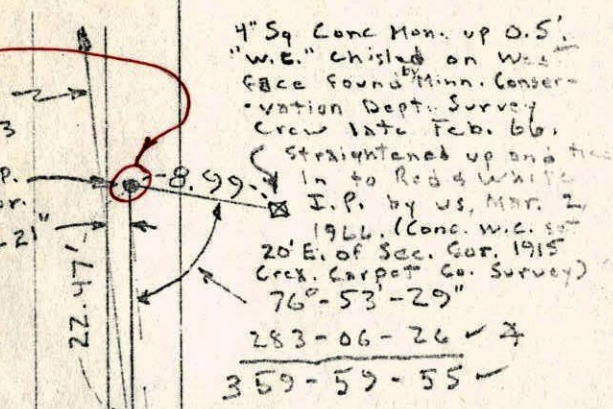 4" Sq Conc Mon. up 0.5'.
"W.C." Chisled on West
face found by Minn. Conser-
vation Dept. Survey
Crew late Feb. 66.
Straightened up and tied
In to Red & White
I.P. by us, Mar. 2,
1966. (Conc. W.C. set
20' E. of Sec. Cor. 1915
Crex. Carpet Co. Survey)
8.99
76°-53'-29"
283-06-26
359-59-55
3
P.
or.
21"
22.47'